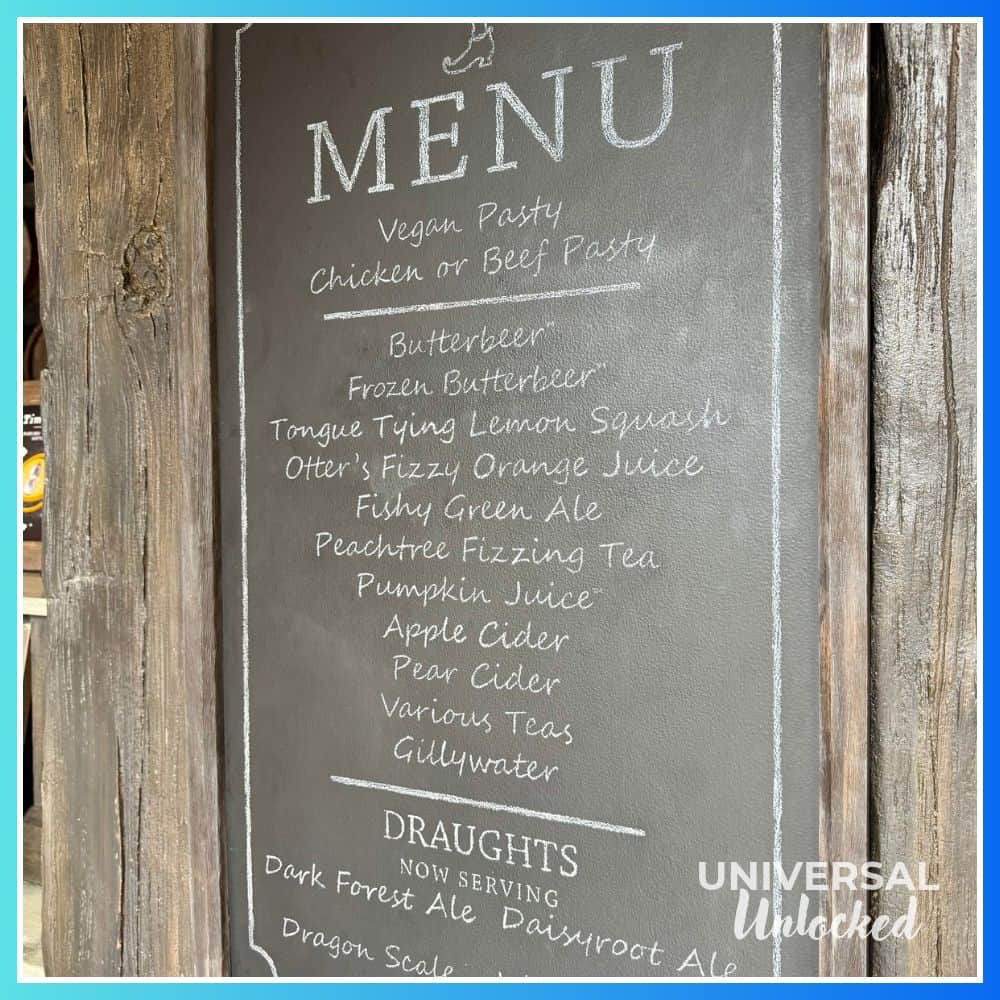 MENU
Vegan Pasty
Chicken or Beef Pasty
Butterbeer™
Frozen Butterbeer™
Tongue Tying Lemon Squash
Otter's Fizzy Orange Juice
Fishy Green Ale
Peachtree Fizzing Tea
Pumpkin Juice™
Apple Cider
Pear Cider
Various Teas
Gillywater
DRAUGHTS
NOW SERVING
Dark Forest Ale Daisyroot Ale
Dragon Scale
UNIVERSAL
Unlocked